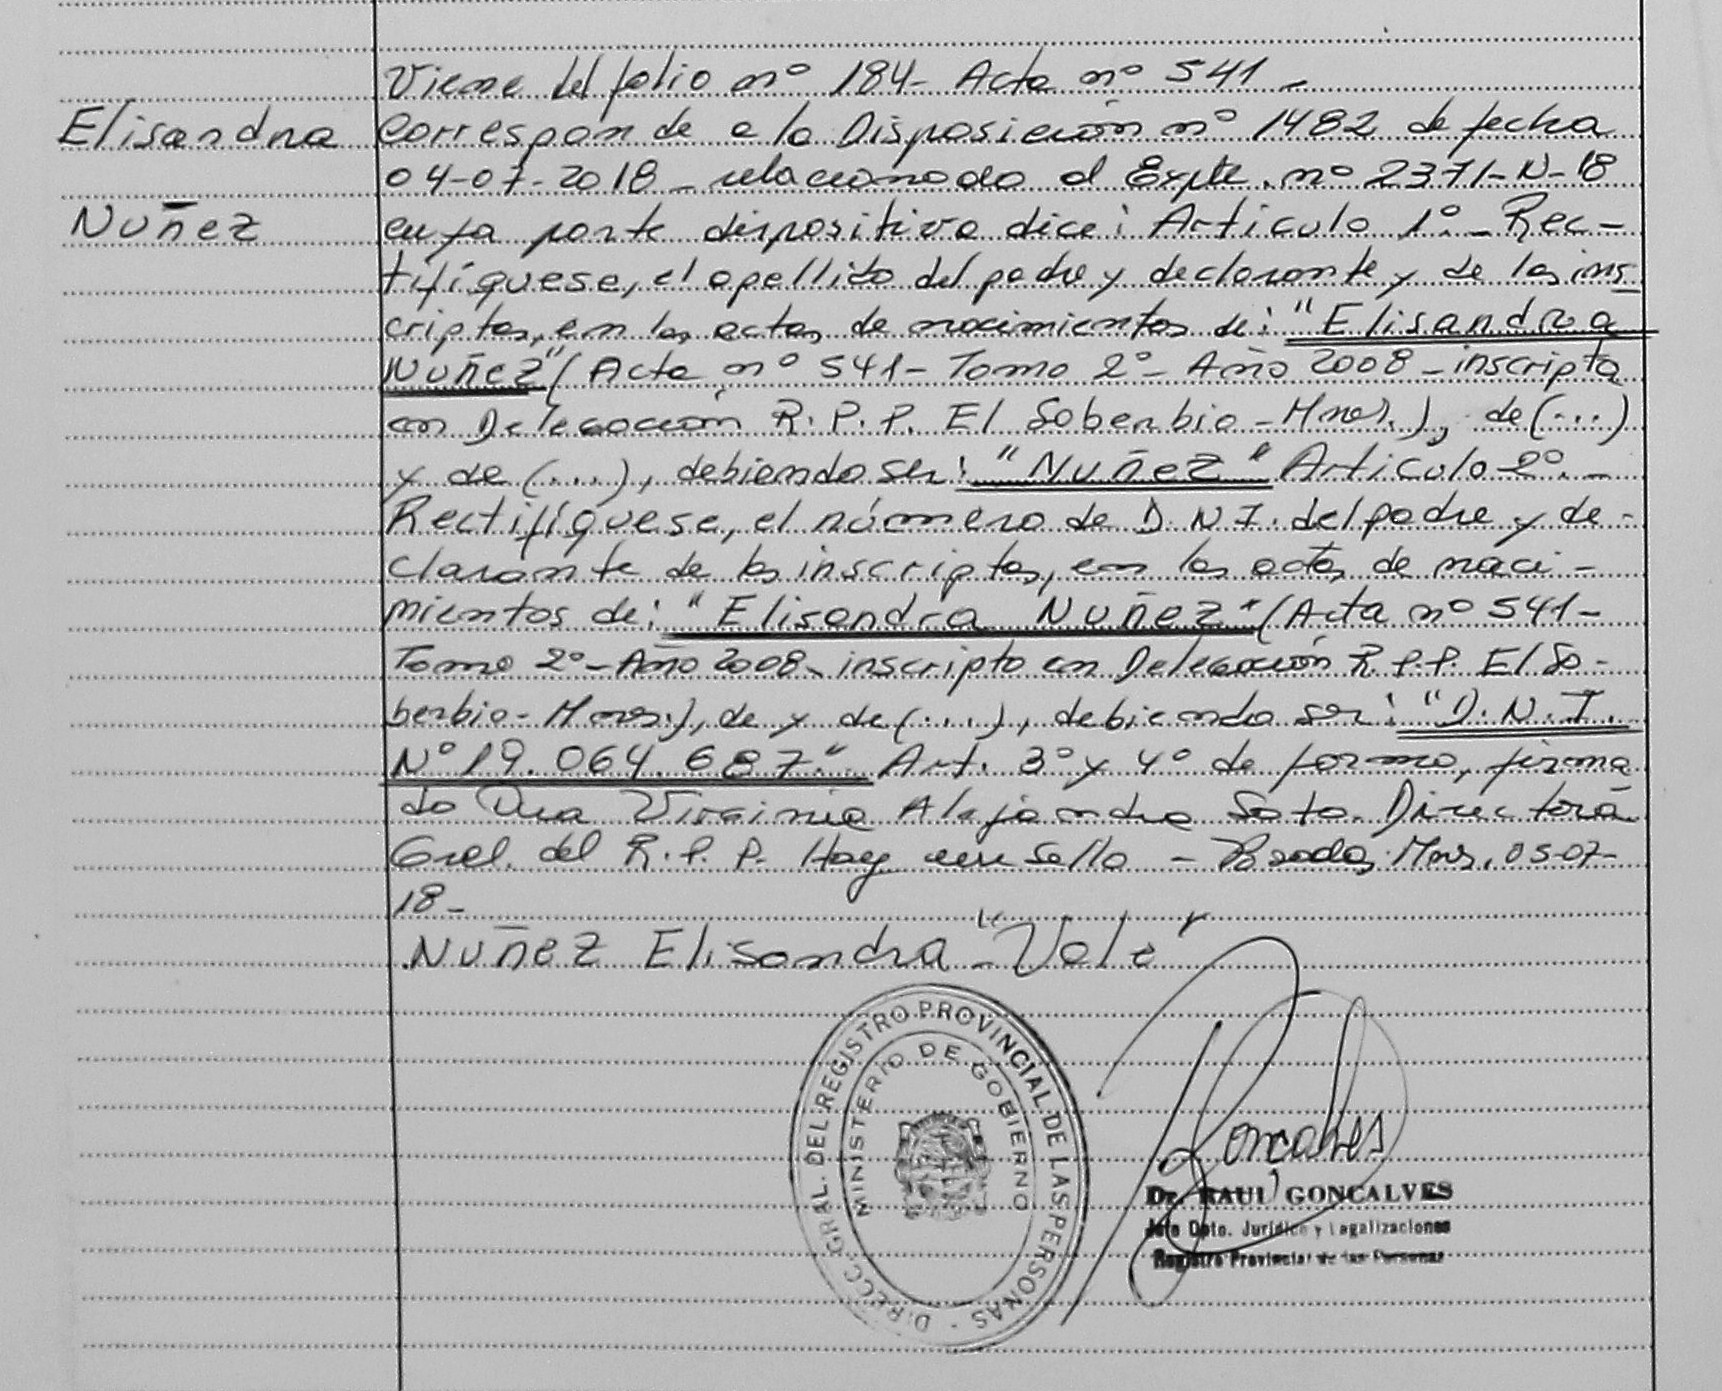 Viene del folio nº 184- Acta nº 541 -
Elisandra
Corresponde a la Disposición nº 1482 de fecha
04-07-2018 - relacionado al Expte. nº 2371-N-18
Nuñez
cuya parte dispositiva dice: Artículo 1º.- Rec-
tifíquese, el apellido del padre y declarante y de los ins
criptos, en las actas de nacimientos de: "Elisandra
Nuñez" (Acta nº 541- Tomo 2º- Año 2008 - inscripta
en Delegación R.P.P. El Soberbio - Mnes.), de (...)
y de (....), debiendo ser: "Nuñez" Artículo 2º.-
Rectifíquese, el número de D.N.I. del padre y de-
clarante de los inscriptos, en las actas de naci-
mientos de: "Elisandra Nuñez" (Acta nº 541-
Tomo 2º- Año 2008- inscripto en Delegación R.P.P. El So-
berbio- Mnes.), de y de (....), debiendo ser: "D.N.I.
Nº 19.064.687." Art. 3º y 4º de forma, firma
do Dra Virginia Alejandra Soto. Directora
Gral. del R.P.P. Hay un sello - Posadas, Mnes, 05-07-
18-
Nuñez Elisandra - "Vale"
DIRECC. GRAL. DEL REGISTRO PROVINCIAL DE LAS PERSONAS -
MINISTERIO DE GOBIERNO
Goncalves
Dr. RAUL GONCALVES
Jefe Dpto. Jurídico y Legalizaciones
Registro Provincial de las Personas